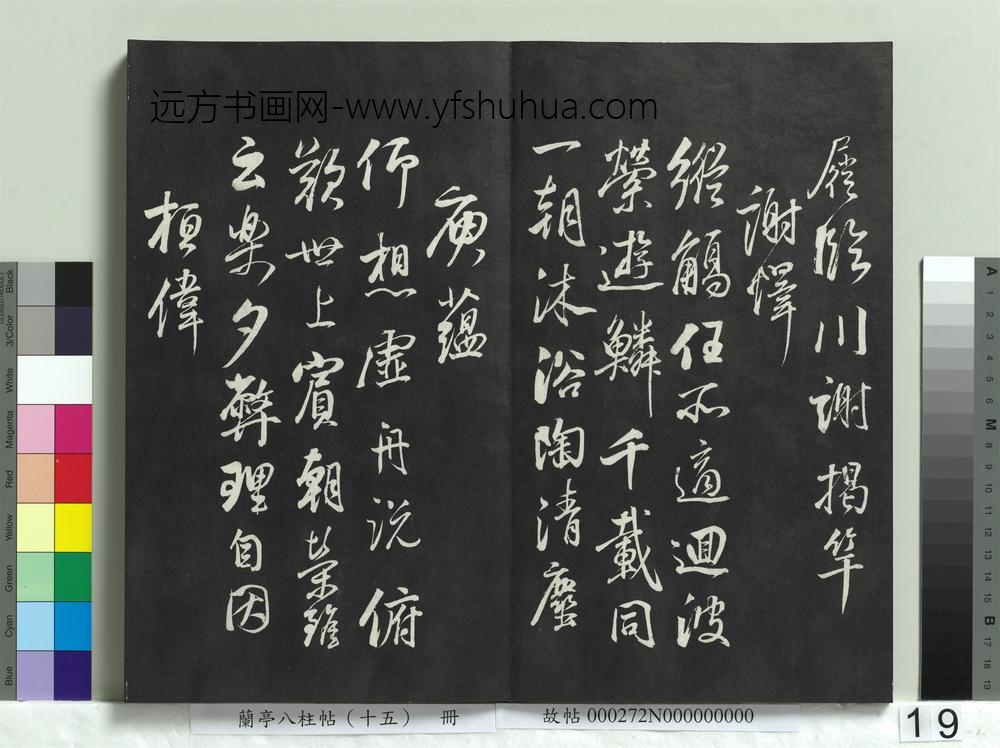 屣臨川謝揭竿
謝懌
縱觴任所適迴波
縈遊鱗千載同
一朝沐浴陶清塵
庾蘊
仰想虛舟說俯
歎世上賓朝榮雖
云樂夕弊理自因
桓偉
远方书画网-www.yfshuhua.com
蘭亭八柱帖（十五） 冊
故帖 000272N000000000
19
Black
3/Color
White
Magenta
Red
Yellow
Green
Cyan
Blue
A
1
2
3
4
5
6
M
8
9
10
11
12
13
14
15
B
17
18
19